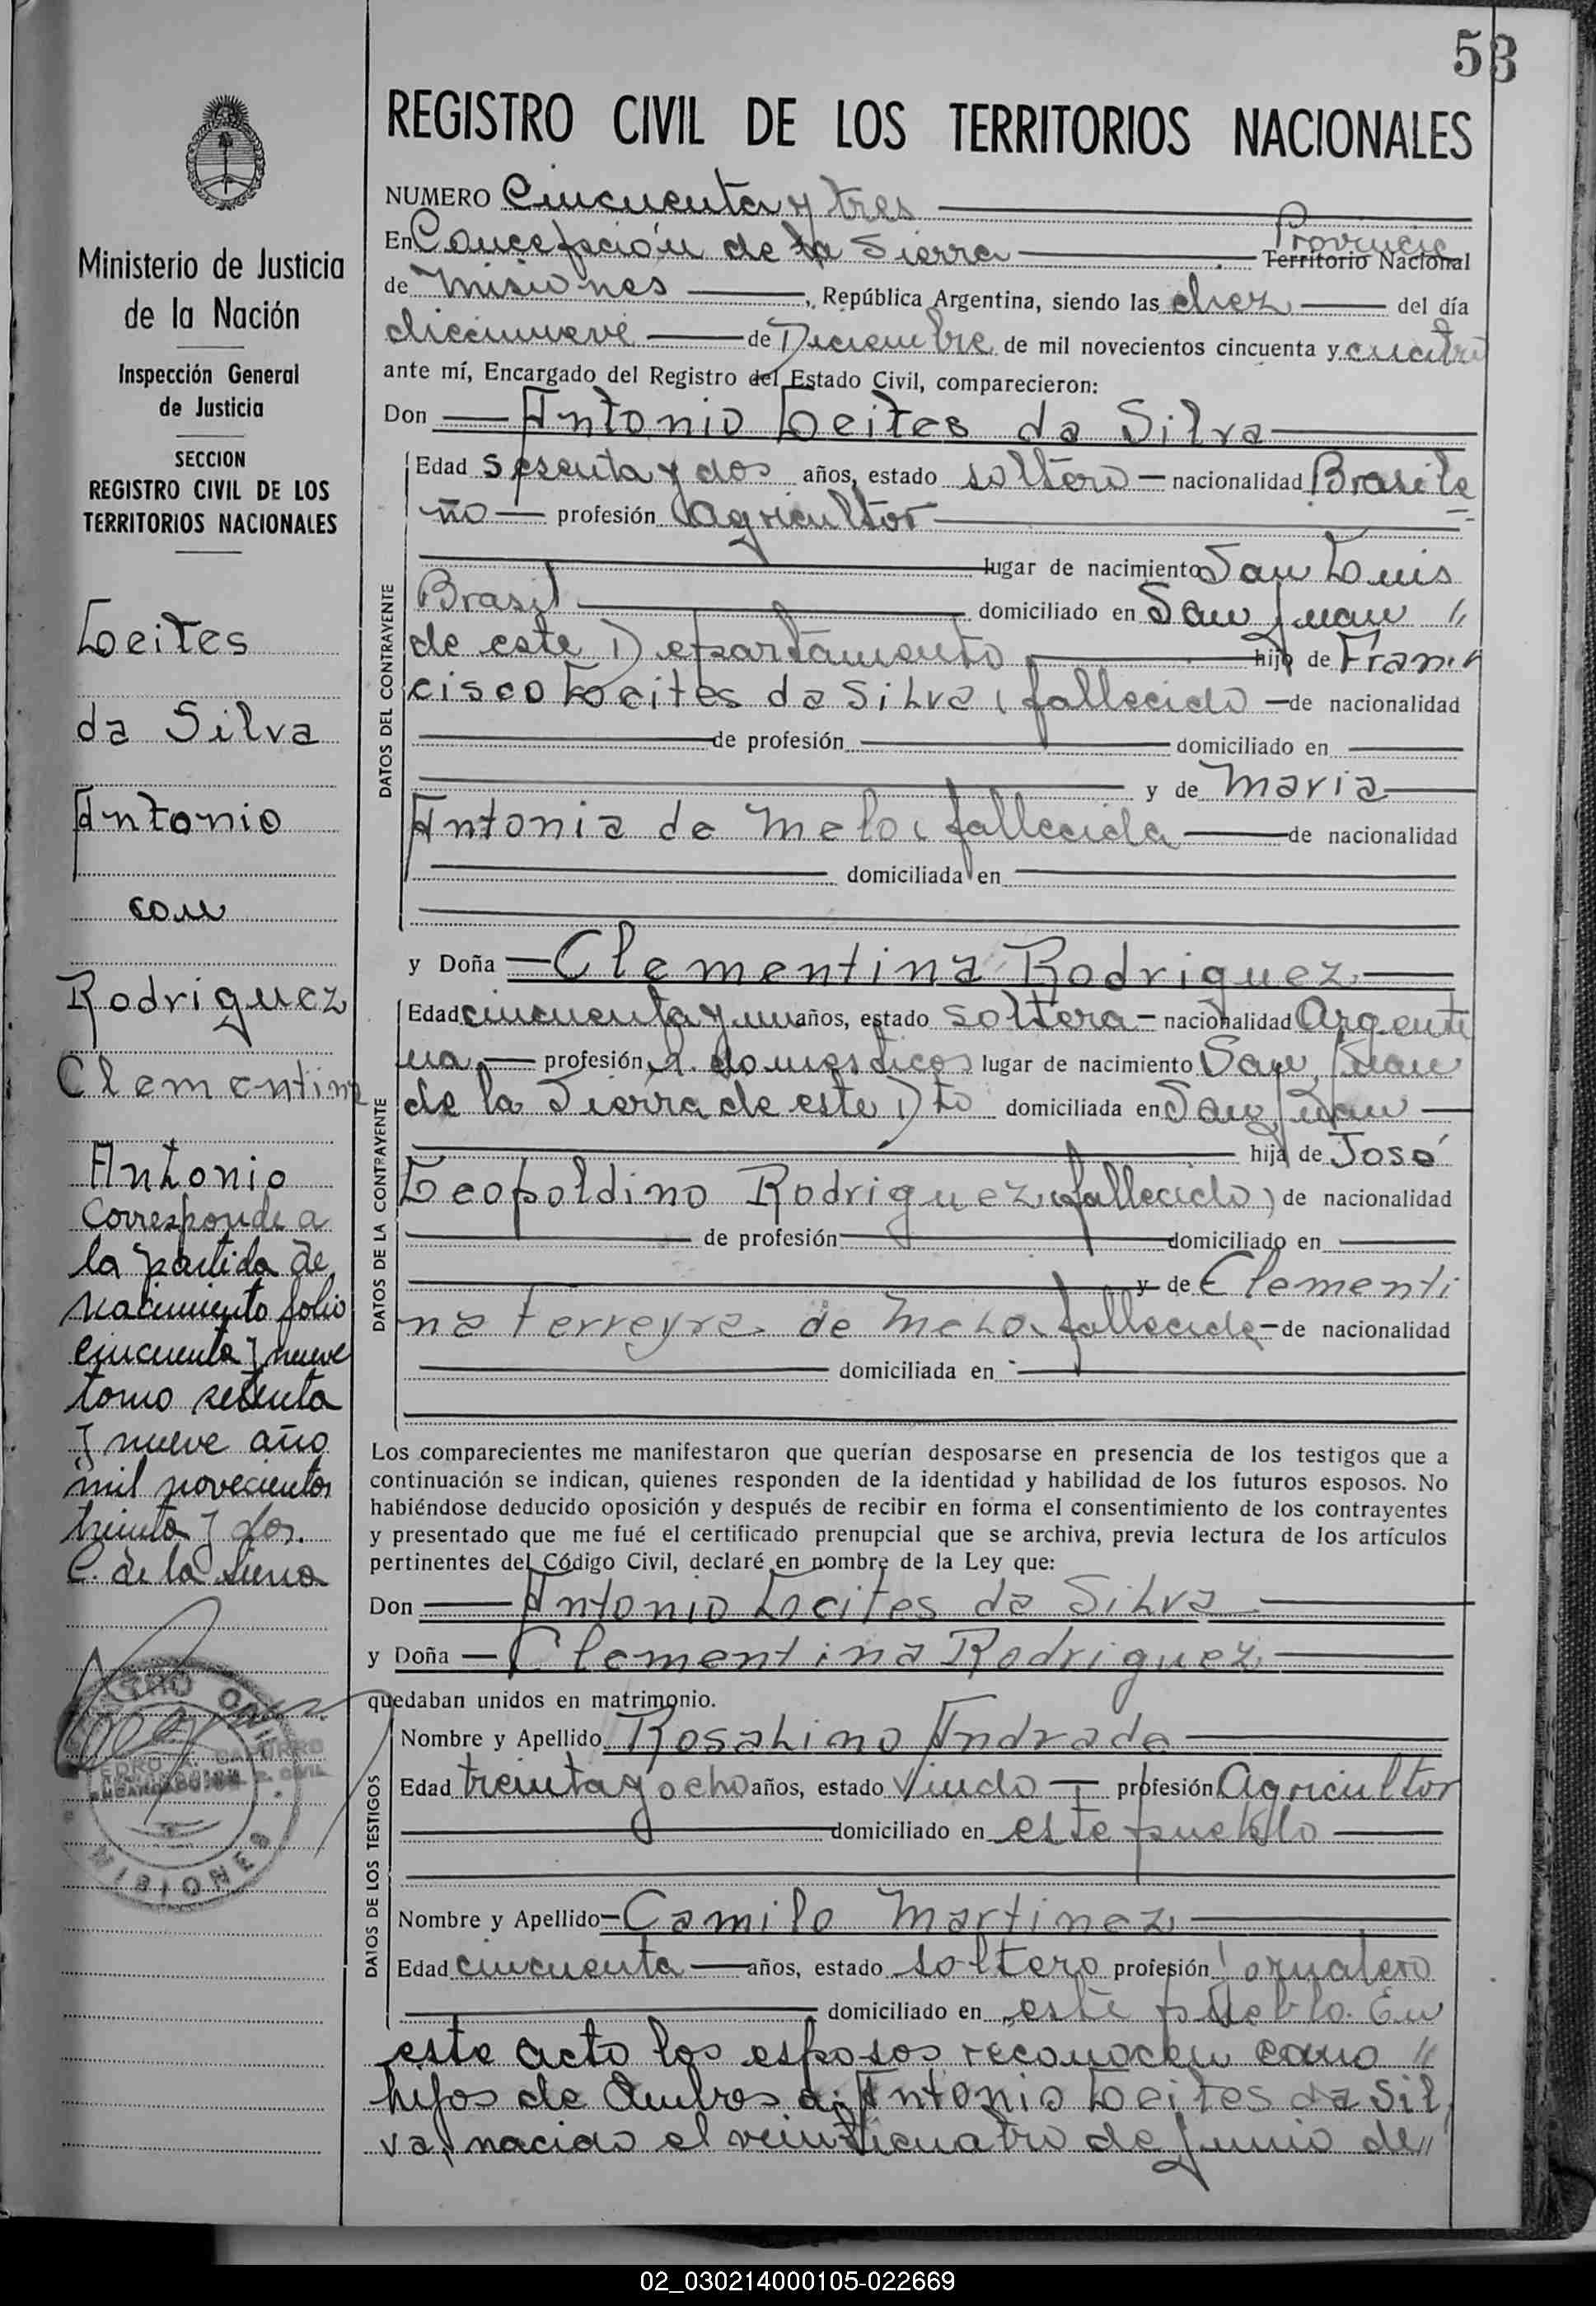 53
REGISTRO CIVIL DE LOS TERRITORIOS NACIONALES
Ministerio de Justicia
de la Nación
Inspección General
de Justicia
SECCION
REGISTRO CIVIL DE LOS
TERRITORIOS NACIONALES
Leites
da Silva
Antonio
con
Rodriguez
Clementina
Antonio
Corresponde a
la partida de
nacimiento folio
cincuenta y nueve
tomo setenta
y nueve año
mil novecientos
treinta y dos.
C. de la Sierra
MISIONES
NUMERO Cincuenta y tres
En Concepción de la Sierra Provincia Territorio Nacional
de Misiones, República Argentina, siendo las diez del día
diecinueve de Diciembre de mil novecientos cincuenta y cuatro
ante mí, Encargado del Registro del Estado Civil, comparecieron:
Don Antonio Leites da Silva
DATOS DEL CONTRAYENTE
Edad sesenta y dos años, estado soltero nacionalidad Brasile
ño profesión Agricultor
lugar de nacimiento San Luis
Brasil domiciliado en San Juan "
de este Departamento hijo de Fran
cisco Leites da Silva (fallecido de nacionalidad
de profesión domiciliado en
y de Maria
Antonia de Melo (fallecida de nacionalidad
domiciliada en
y Doña Clementina Rodriguez
DATOS DE LA CONTRAYENTE
Edad cincuenta y un años, estado soltera nacionalidad Argenti
na profesión q. domesticos lugar de nacimiento San Juan
de la Sierra de este Dto domiciliada en San Juan
hija de José
Leopoldino Rodriguez (fallecido) de nacionalidad
de profesión domiciliado en
y de Clementi
na Ferreyra de Melo (fallecida de nacionalidad
domiciliada en
Los comparecientes me manifestaron que querían desposarse en presencia de los testigos que a
continuación se indican, quienes responden de la identidad y habilidad de los futuros esposos. No
habiéndose deducido oposición y después de recibir en forma el consentimiento de los contrayentes
y presentado que me fué el certificado prenupcial que se archiva, previa lectura de los artículos
pertinentes del Código Civil, declaré en nombre de la Ley que:
Don Antonio Leites da Silva
y Doña Clementina Rodriguez
quedaban unidos en matrimonio.
DATOS DE LOS TESTIGOS
Nombre y Apellido Rosalino Andrade
Edad treinta y ocho años, estado Viudo profesión Agricultor
domiciliado en este pueblo
Nombre y Apellido Camilo Martinez
Edad cincuenta años, estado soltero profesión Jornalero
domiciliado en este pueblo. En
este acto los esposos reconocen como "
hijos de Ambos a: Antonio Leites da Sil
va, nacido el veinticuatro de Junio de "
02_030214000105-022669